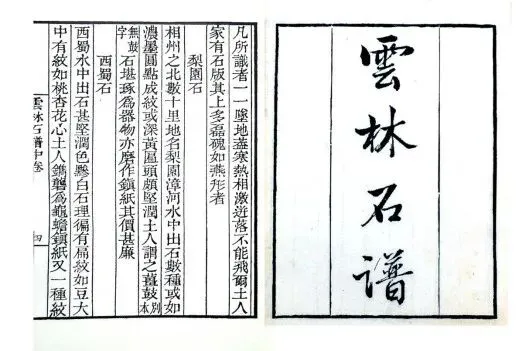 雲林石譜
凡所識者一一墜地蓋寒熱相激迸落不能飛爾土人
家有石版其上多磊磈如燕形者
梨園石
相州之北數十里地名梨園漳河水中出石數種或如
濃墨圓點成紋或深黃匾頭頗堅潤土人謂之薑鼓別本
無鼓字石堪琢爲器物亦磨作鎭紙其價甚廉
西蜀石
西蜀水中出石甚堅潤色黲白石理徧有扁紋如豆大
中有紋如桃杏花心土人鐫礱爲龜蟾鎭紙又一種紋
雲林石譜中卷 四